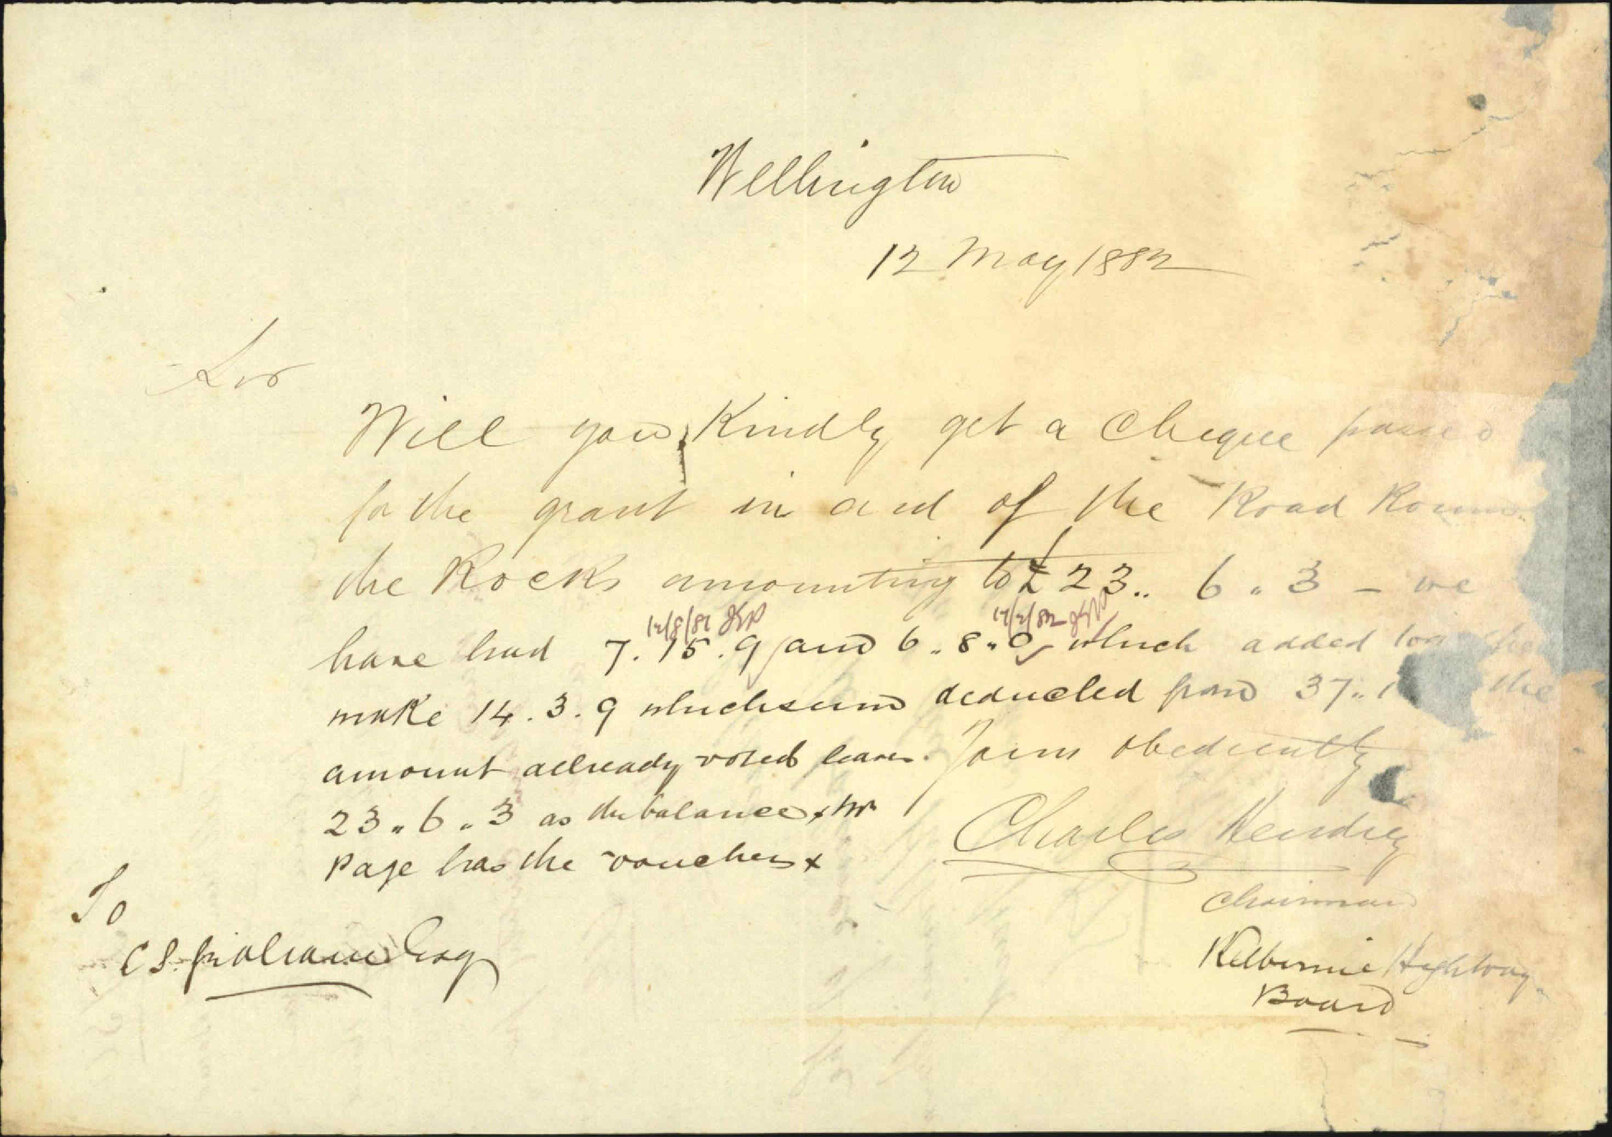 Wellington
12 May 1882
Sir
Will you Kindly get a Cheque passed
for the grant in aid of the Road Round
the Rocks amounting to £23.. 6 " 3 – we
12/8/81
have had 7. 15. 9 and 6 " 8 " 0 which added together
make 14 . 3 . 9 which sum deducted from 37 " the
amount allready voted leaves. Yours obediently
23 " 6 " 3 as the balance x Mr
Charles Hendry
Page has the vouchers x
Chairman
To
C S. Esq
Kilbirnie Highway
Board